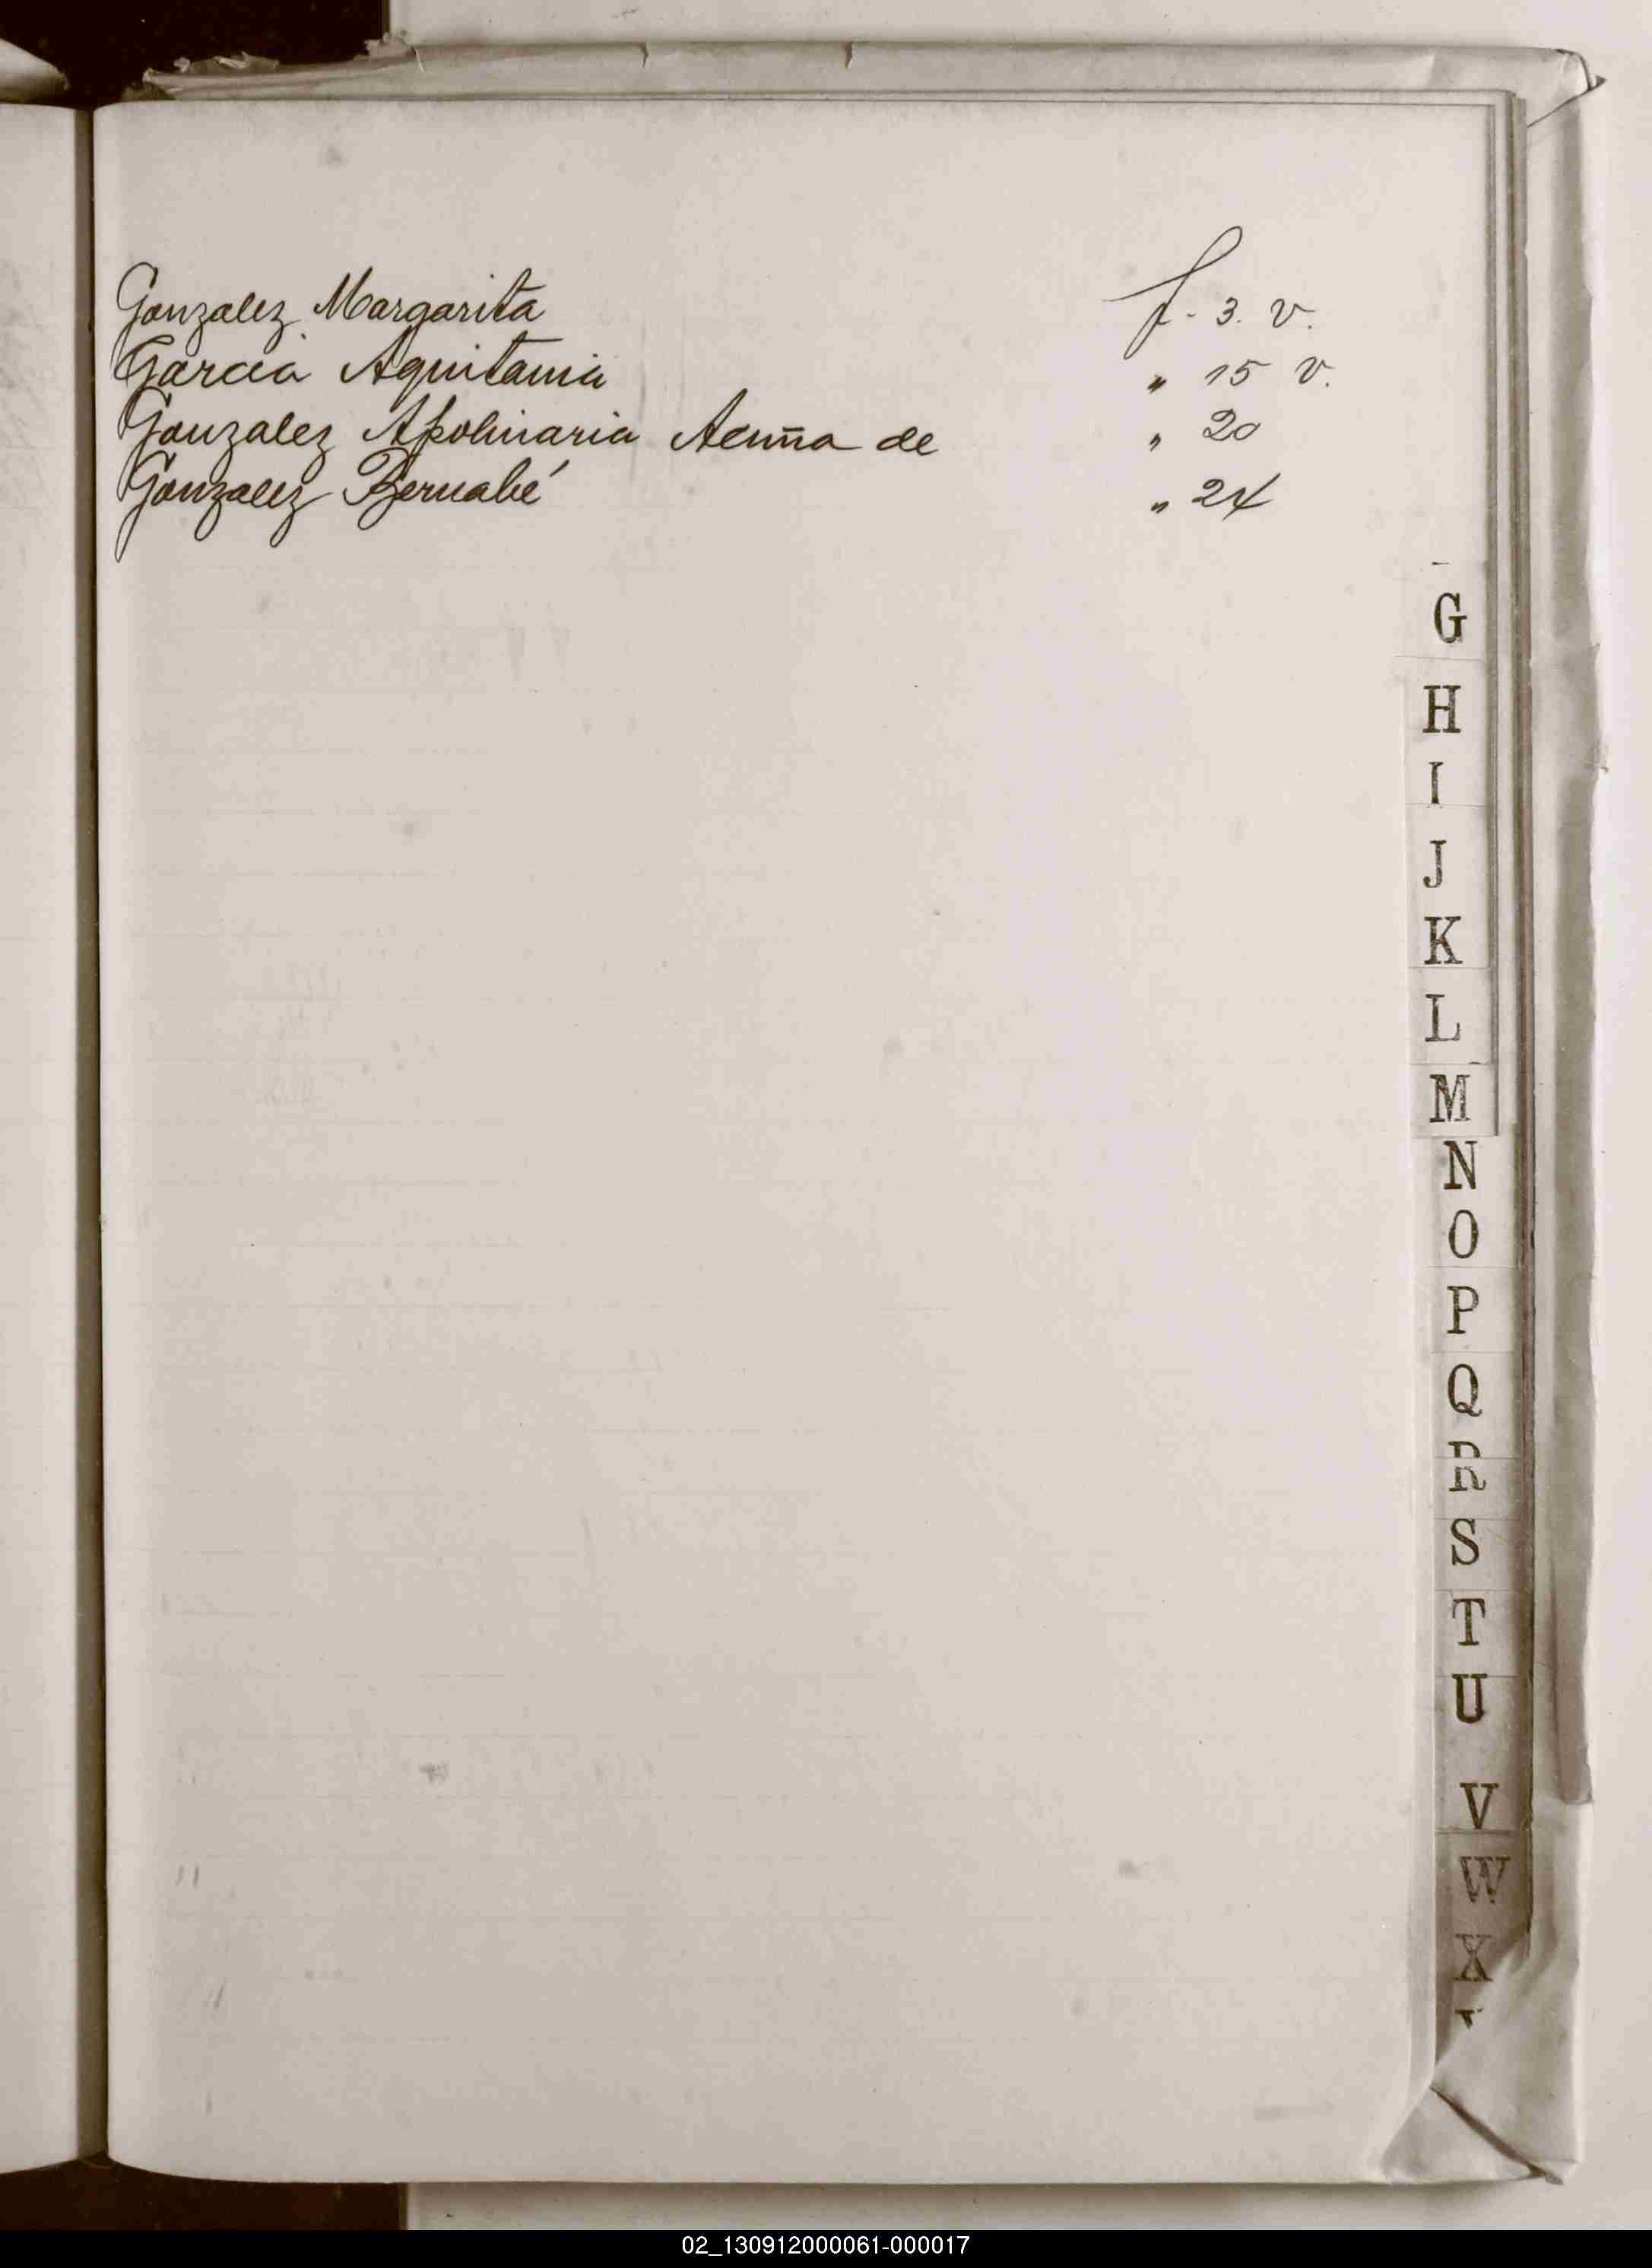 Gonzalez Margarita f. 3. v.
Garcia Aquitania " 15 v.
Gonzalez Apolinaria Acuña de " 20
Gonzalez Bernabé " 24
G
H
I
J
K
L
M
N
O
P
Q
R
S
T
U
V
W
X
02_130912000061-000017